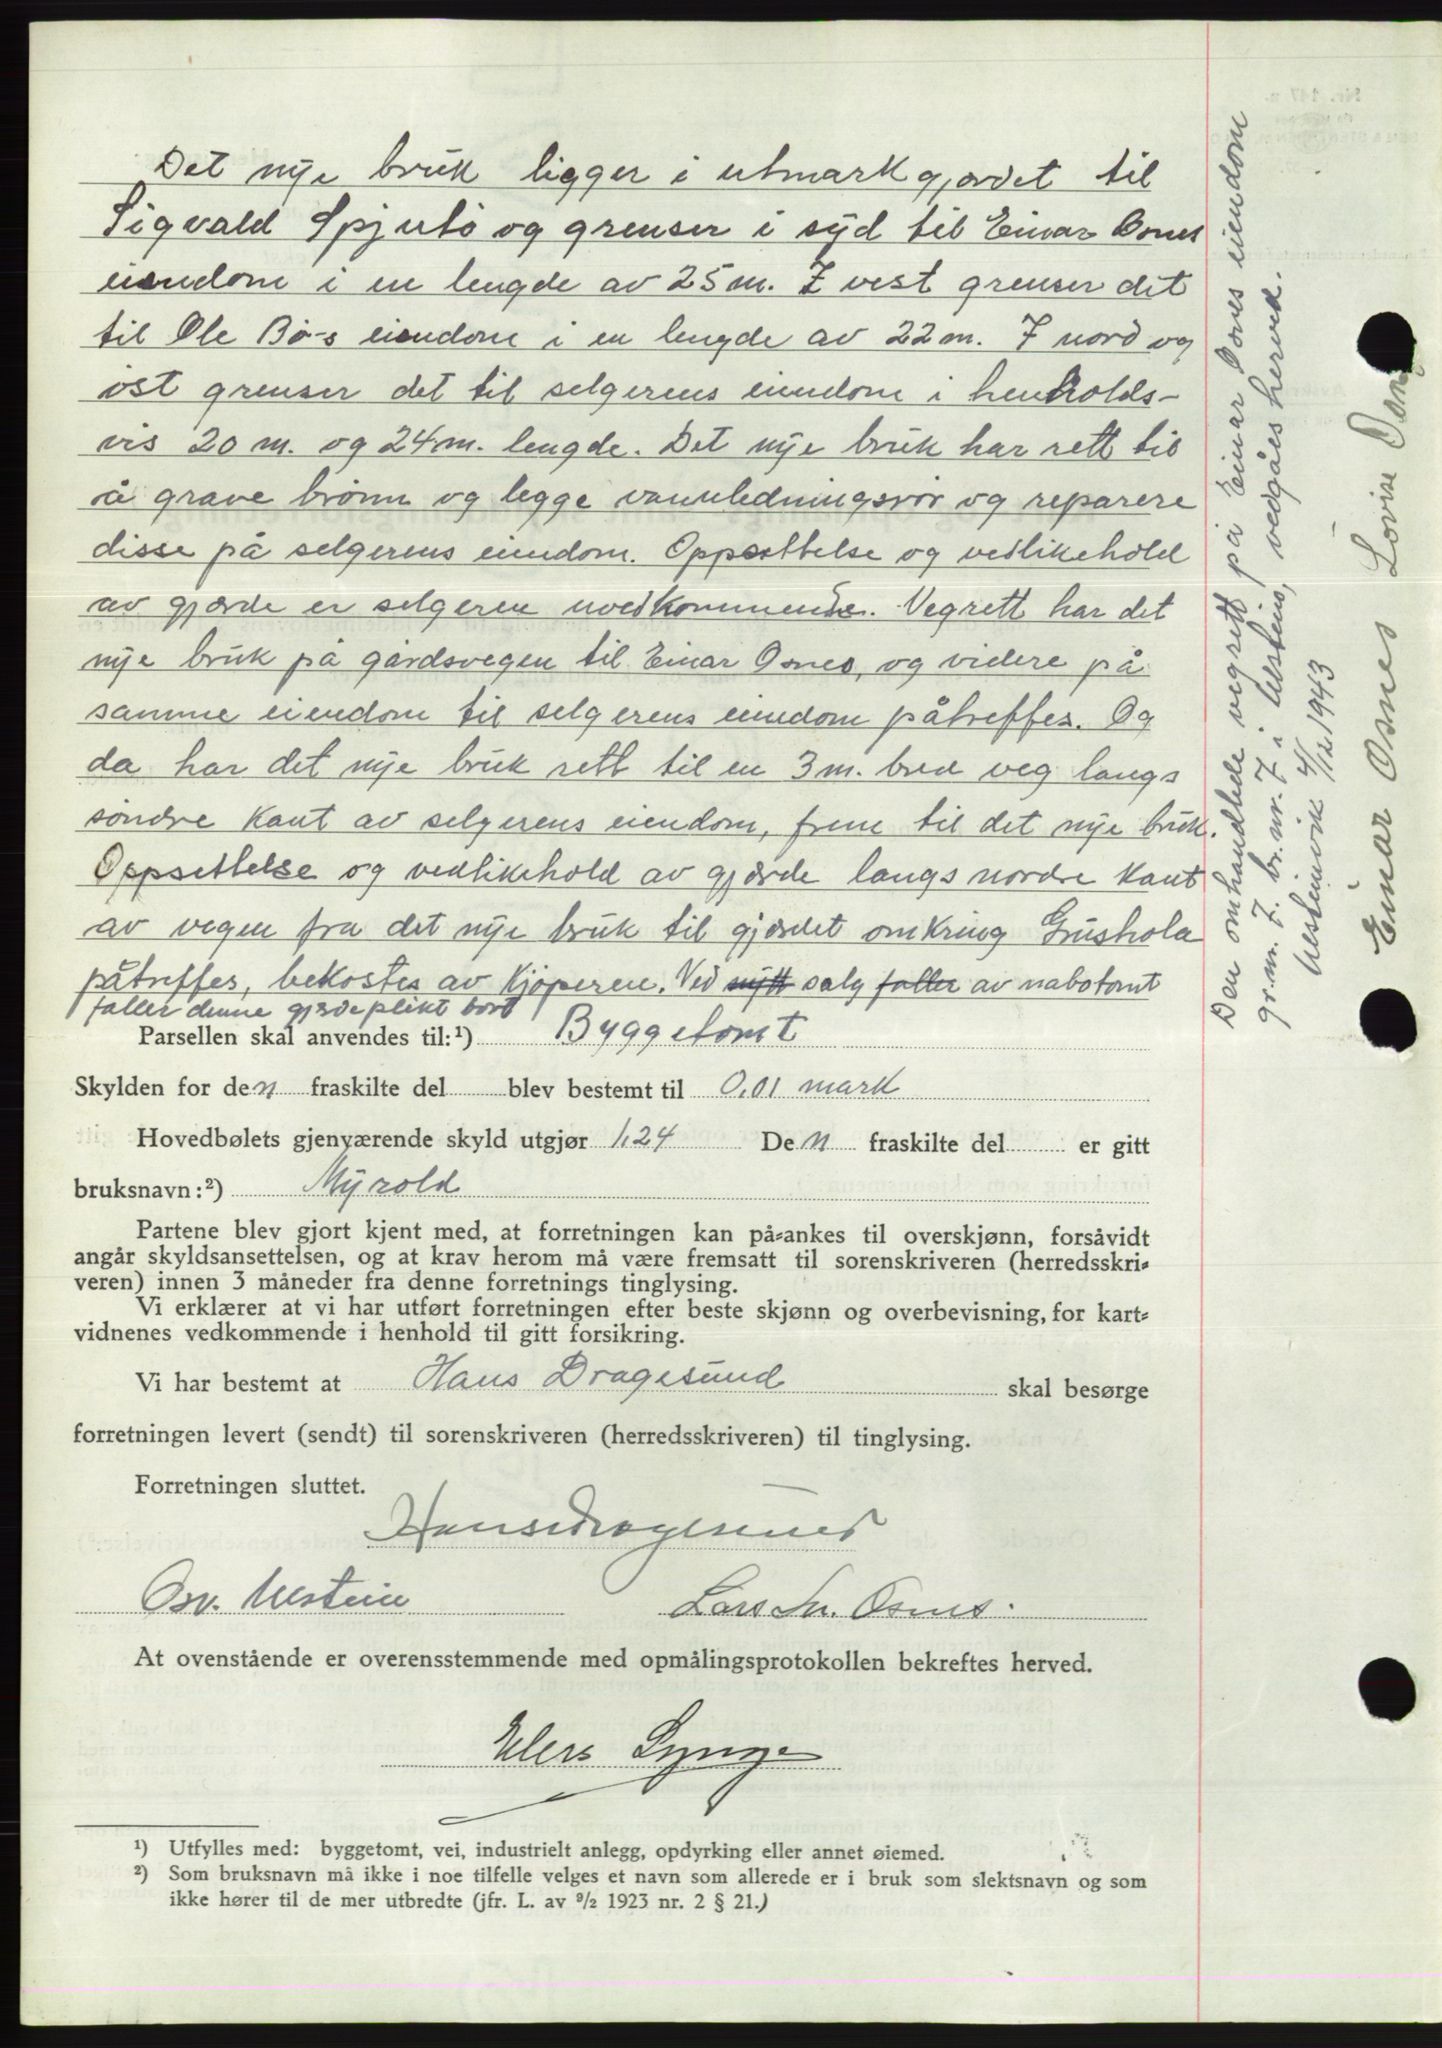 Det nye bruk ligger i utmarkgjærdet til
Sigvald Spjutö og grenser i syd til Einar Osnes
eiendom i en lengde av 25 m. I vest grenser det
til Ole Bö-s eiendom i en lengde av 22 m. I nord og
öst grenser det til selgerens eiendom i henholds-
vis 20 m. og 24 m. lengde. Det nye bruk har rett til
å grave brönn og legge vannledningsrör og reparere
disse på selgerens eiendom. Oppsettelse og vedlikehold
av gjærde er selgeren uvedkommende. Vegrett har det
nye bruk på gårdsvegen til Einar Osnes, og videre på
samme eiendom til selgerens eiendom påtreffes. Og
da har det nye bruk rett til en 3 m. bred veg langs
söndre kant av selgerens eiendom, frem til det nye bruk.
Oppsettelse og vedlikehold av gjærde langs nordre kant
av vegen fra det nye bruk til gjærdet omkring Grushola
påtreffes, bekostes av kjöperen. Ved nytt salg faller av nabotomt
faller denne gjerdeplikt bort
Parsellen skal anvendes til:¹) Byggetomt
Skylden for den fraskilte del blev bestemt til 0,01 mark
Hovedbølets gjenværende skyld utgjør 1,24 Den fraskilte del er gitt
bruksnavn:²) Myrold
Partene blev gjort kjent med, at forretningen kan på-ankes til overskjønn, forsåvidt
angår skyldsansettelsen, og at krav herom må være fremsatt til sorenskriveren (herredsskri-
veren) innen 3 måneder fra denne forretnings tinglysing.
Vi erklærer at vi har utført forretningen efter beste skjønn og overbevisning, for kart-
vidnenes vedkommende i henhold til gitt forsikring.
Vi har bestemt at Hans Dragesund skal besørge
forretningen levert (sendt) til sorenskriveren (herredsskriveren) til tinglysing.
Forretningen sluttet.
Hans Dragesund
Osv. Ulstein Lars Jn. Osnes.
At ovenstående er overensstemmende med opmålingsprotokollen bekreftes herved.
Elers Synge
¹) Utfylles med: byggetomt, vei, industrielt anlegg, opdyrking eller annet øiemed.
²) Som bruksnavn må ikke i noe tilfelle velges et navn som allerede er i bruk som slektsnavn og som
ikke hører til de mer utbredte (jfr. L. av ⁹/₂ 1923 nr. 2 § 21.)
Den omhandlede vegrett på Einar Osnes eiendom
gr.nr. 7. br.nr. 7 i Ulstein, vedgåes herved.
Ulsteinvik 4/12 1943
Einar Osnes Lovise Osnes